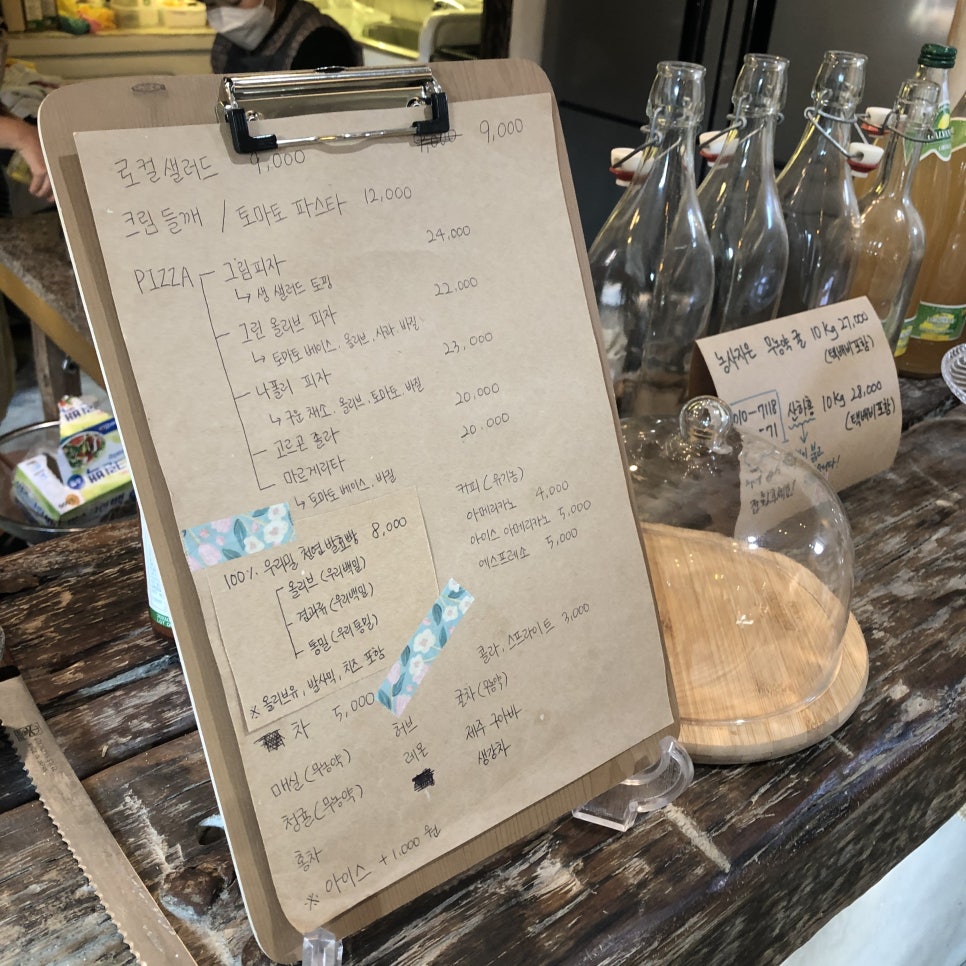 로컬 샐러드 9,000 9,000
크림 들깨 / 토마토 파스타 12,000
PIZZA 그림피자 24,000
↳ 생 샐러드 토핑
그린 올리브 피자 22,000
↳ 토마토 베이스, 올리브, 사라, 바질
나폴리 피자 23,000
↳ 구운 채소, 올리브, 토마토, 바질
고르곤 졸라 20,000
마르게리타 20,000
↳ 토마토 베이스, 바질
100% 우리밀 천연 발효빵 8,000
올리브 (우리백밀)
견과류 (우리백밀)
통밀 (우리통밀)
※ 올리브유, 발사믹, 치즈 포함
커피 (유기농)
아메리카노 4,000
아이스 아메리카노 5,000
에스프레소 5,000
콜라, 스프라이트 3,000
차 5,000
매실 (무농약)
청포 (무농약)
홍차
허브
레몬
귤차 (무농약)
제주 구아바
생강차
※ 아이스 +1,000 원
농사지은 무농약 귤 10Kg 27,000
(택배비포함)
010-7118
-71
산희롱 10Kg 28,000
(택배비포함)